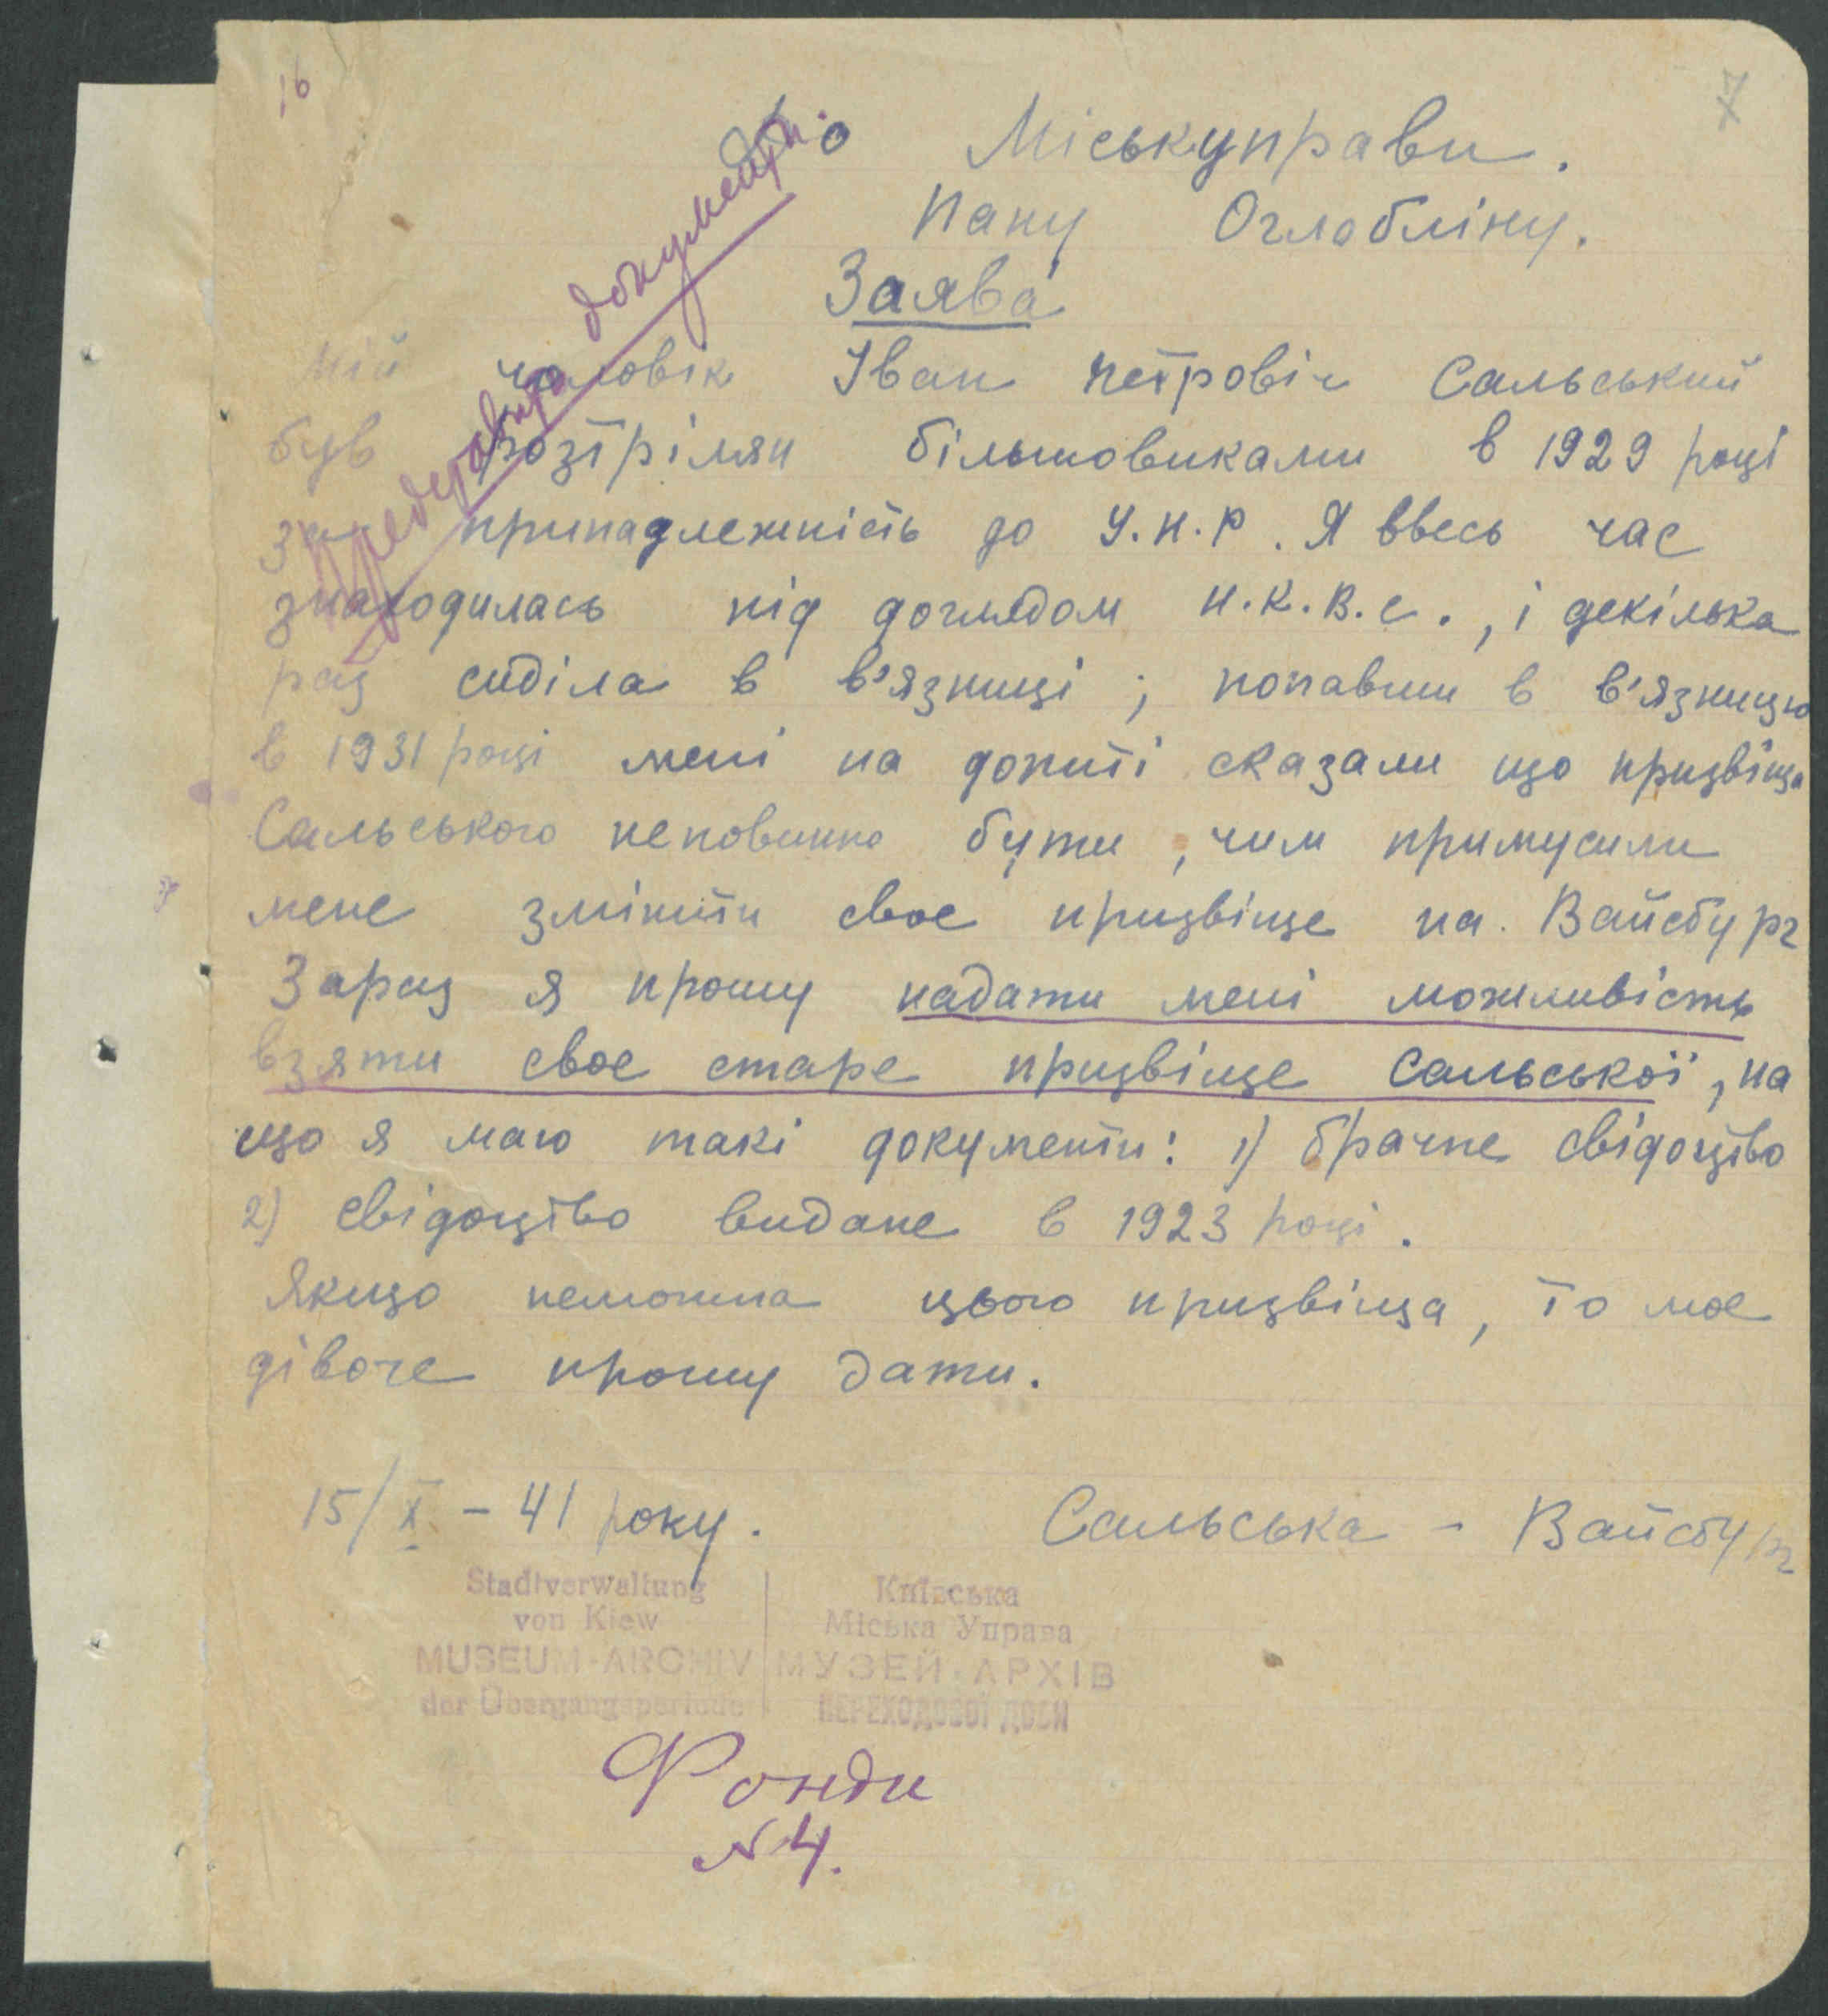 16
7
До Міськуправи.
Пану Оглобліну.
Заява
Мій чоловік Іван Петровіч Сальський
був розтрілян більшовиками в 1929 році
за принадлежність до У.Н.Р. Я ввесь час
знаходилась під доглядом Н.К.В.С., і декілька
раз сиділа в в'язниці; попавши в в'язницю
в 1931 році мені на допиті сказали що призвіща
Сальського неповинно бути, чим примусили
мене змінити своє призвіще на Вайсбург
Зараз я прошу надати мені можливість
взяти своє старе призвіще Сальської, на
що я маю такі документи: 1) брачне свідоцтво
2) свідоцтво видане в 1923 році.
Якщо неможна цього призвіща, то моє
дівоче прошу дати.
15/X - 41 року. Сальська - Вайсбург
документи
Stadtverwaltung von Kiew
MUSEUM-ARCHIV
der Übergangsperiode
Київська
Міська Управа
МУЗЕЙ-АРХІВ
ПЕРЕХОДОВОЇ ДОБИ
Фонди
N 4.